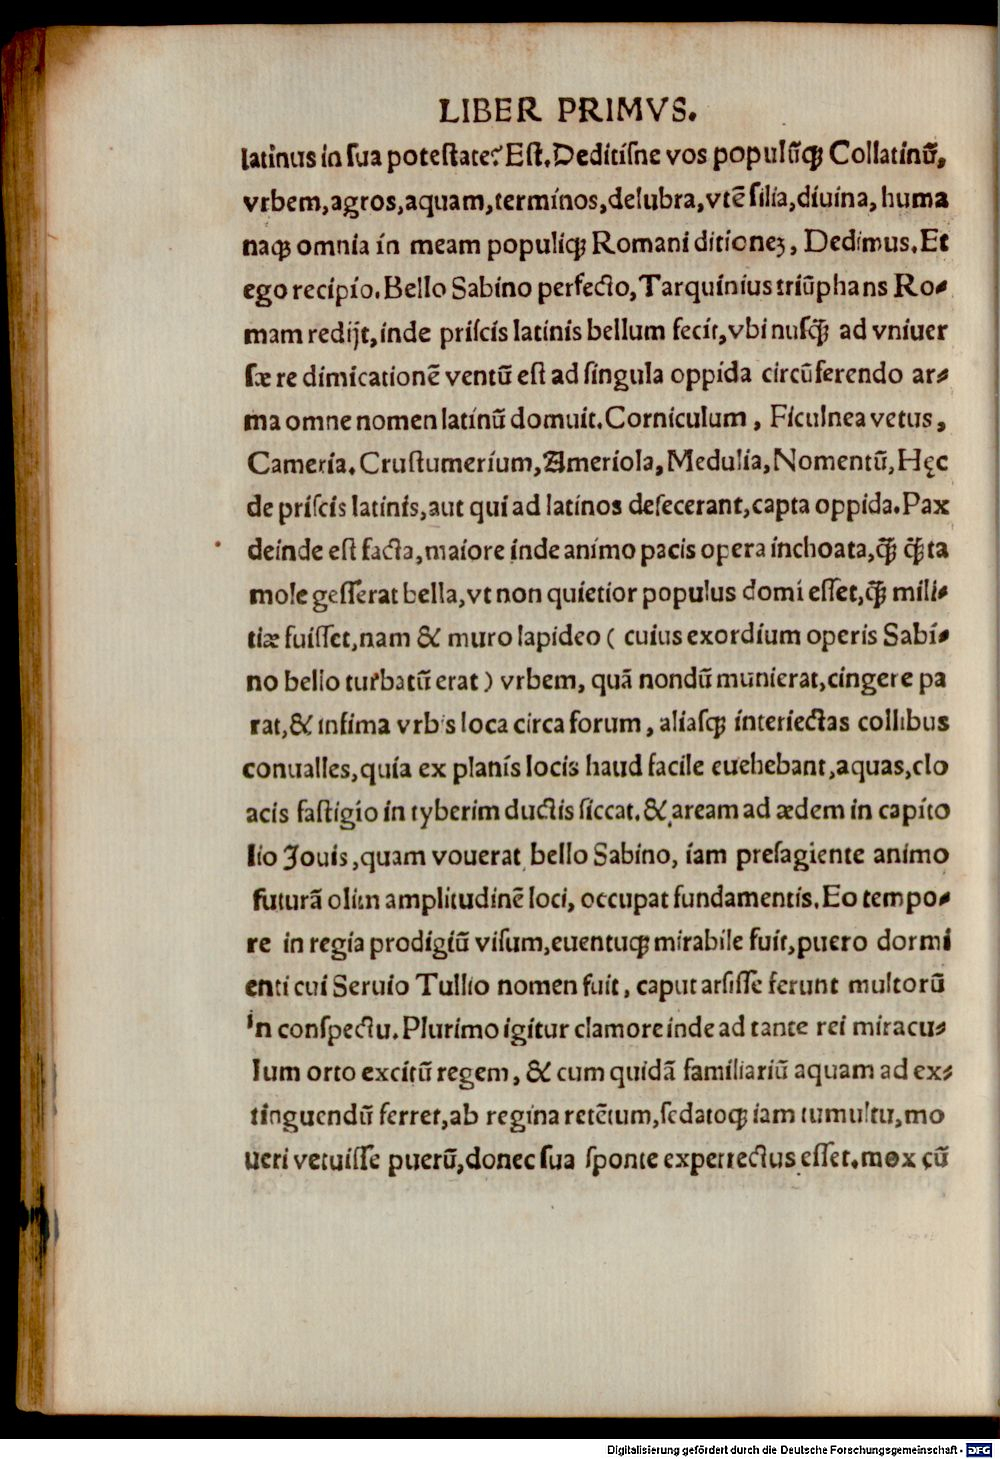 LIBER PRIMVS.
latinus in sua potestate? Est. Deditisne vos populūq; Collatinū,
vrbem, agros, aquam, terminos, delubra, vtē silia, diuina, huma
naq; omnia in meam populiq; Romani ditionez, Dedimus. Et
ego recipio. Bello Sabino perfecto, Tarquinius triūphans Ro-
mam redijt, inde priscis latinis bellum fecit, vbi nusq̄ ad vniuer
sæ re dimicationē ventū est ad singula oppida circūferendo ar-
ma omne nomen latinū domuit. Corniculum, Ficulnea vetus,
Cameria. Crustumerium, Ameriola, Medulia, Nomentū, Hęc
de priscis latinis, aut qui ad latinos defecerant, capta oppida. Pax
deinde est facta, maiore inde animo pacis opera inchoata, q̄ q̄ta
mole gesserat bella, vt non quietior populus domi esset, q̄ mili-
tiæ fuisset, nam & muro lapideo ( cuius exordium operis Sabi-
no bello turbatū erat ) vrbem, quā nondū munierat, cingere pa
rat, & infima vrbis loca circa forum, aliasq; interiectas collibus
conualles, quia ex planis locis haud facile euehebant, aquas, clo
acis fastigio in tyberim ductis siccat. & aream ad ædem in capito
lio Jouis, quam vouerat bello Sabino, iam presagiente animo
futurā olim amplitudinē loci, occupat fundamentis. Eo tempo-
re in regia prodigiū visum, euentuq; mirabile fuit, puero dormi
enti cui Seruio Tullio nomen fuit, caput arsisse ferunt multorū
in conspectu. Plurimo igitur clamore inde ad tante rei miracu-
lum orto excitū regem, & cum quidā familiariū aquam ad ex-
tinguendū ferret, ab regina retētum, sedatoq; iam tumultu, mo
ueri vetuisse puerū, donec sua sponte experrectus esset. mox cū
Digitalisierung gefördert durch die Deutsche Forschungsgemeinschaft - DFG